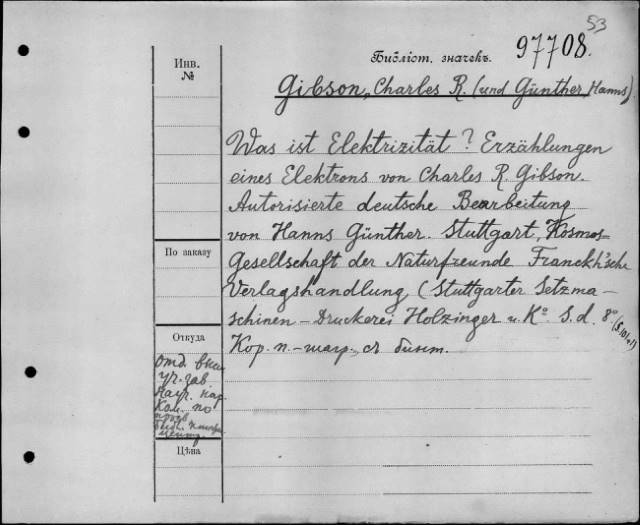 53
Инв.
№
Библіот. значекъ. 97708.
Gibson, Charles R. (und Günther, Hanns)
Was ist Elektrizität? Erzählungen
eines Elektrons von Charles R. Gibson.
Autorisierte deutsche Bearbeitung
von Hanns Günther. Stuttgart, Kosmos=
Gesellschaft der Naturfreunde Franckh'sche
Verlagshandlung (Stuttgarter Setzma-
schinen-Druckerei Holzinger u. Ko S. d. 8°
Кор. п.
По заказу
Откуда
Отд. выс
уч. зав.
Науч. нар.
Ком. по
Цѣна